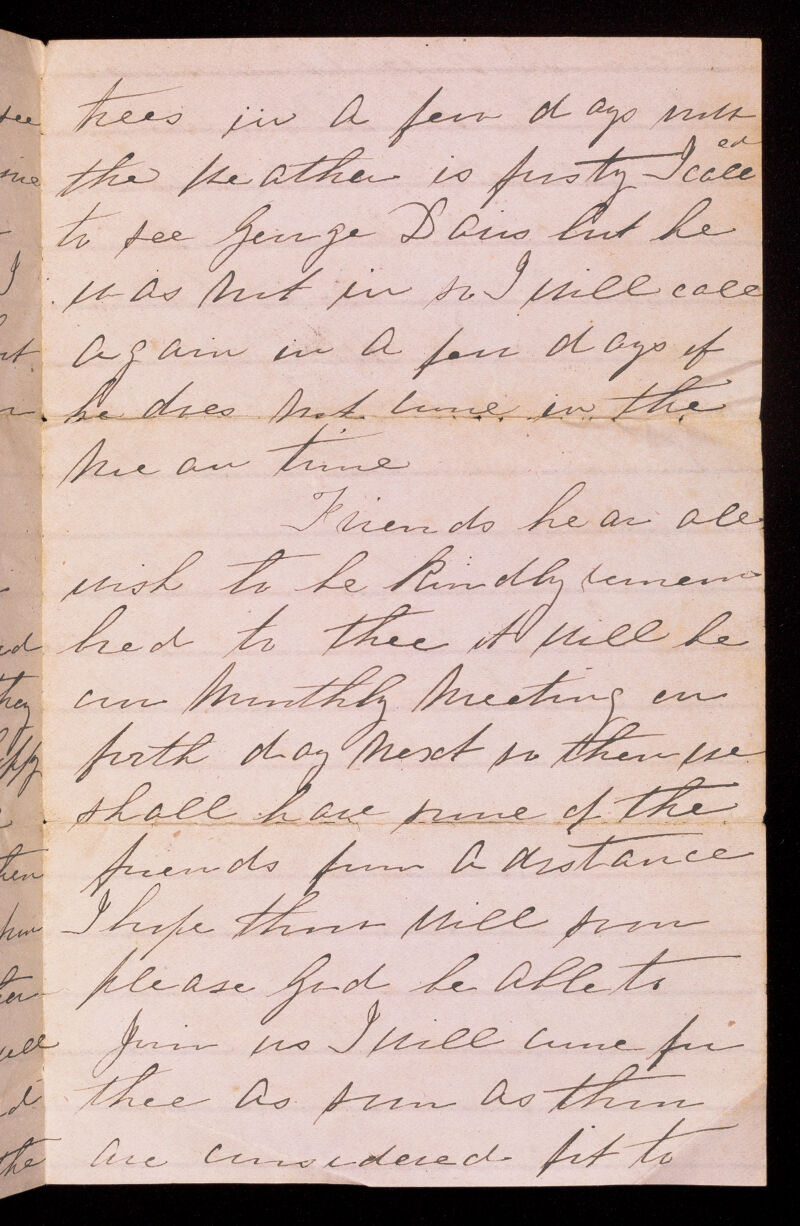 trees in a few days
the weather is frosty I called
to see George Davis but he
was not in so I will call
again in a few days if
he does not come in the
mean time
Friends hear all
wish to be kindly remem
bred to thee it will be
our Monthly Meeting on
forth day Next so then we
shall have some of the
friends from a distance
I hope thou will soon
please God be able to
Join us I will come for
thee as soon as thou
are considered fit to
see
me
I
ut
ed
they
ppy
then
him
ter
well
d
the